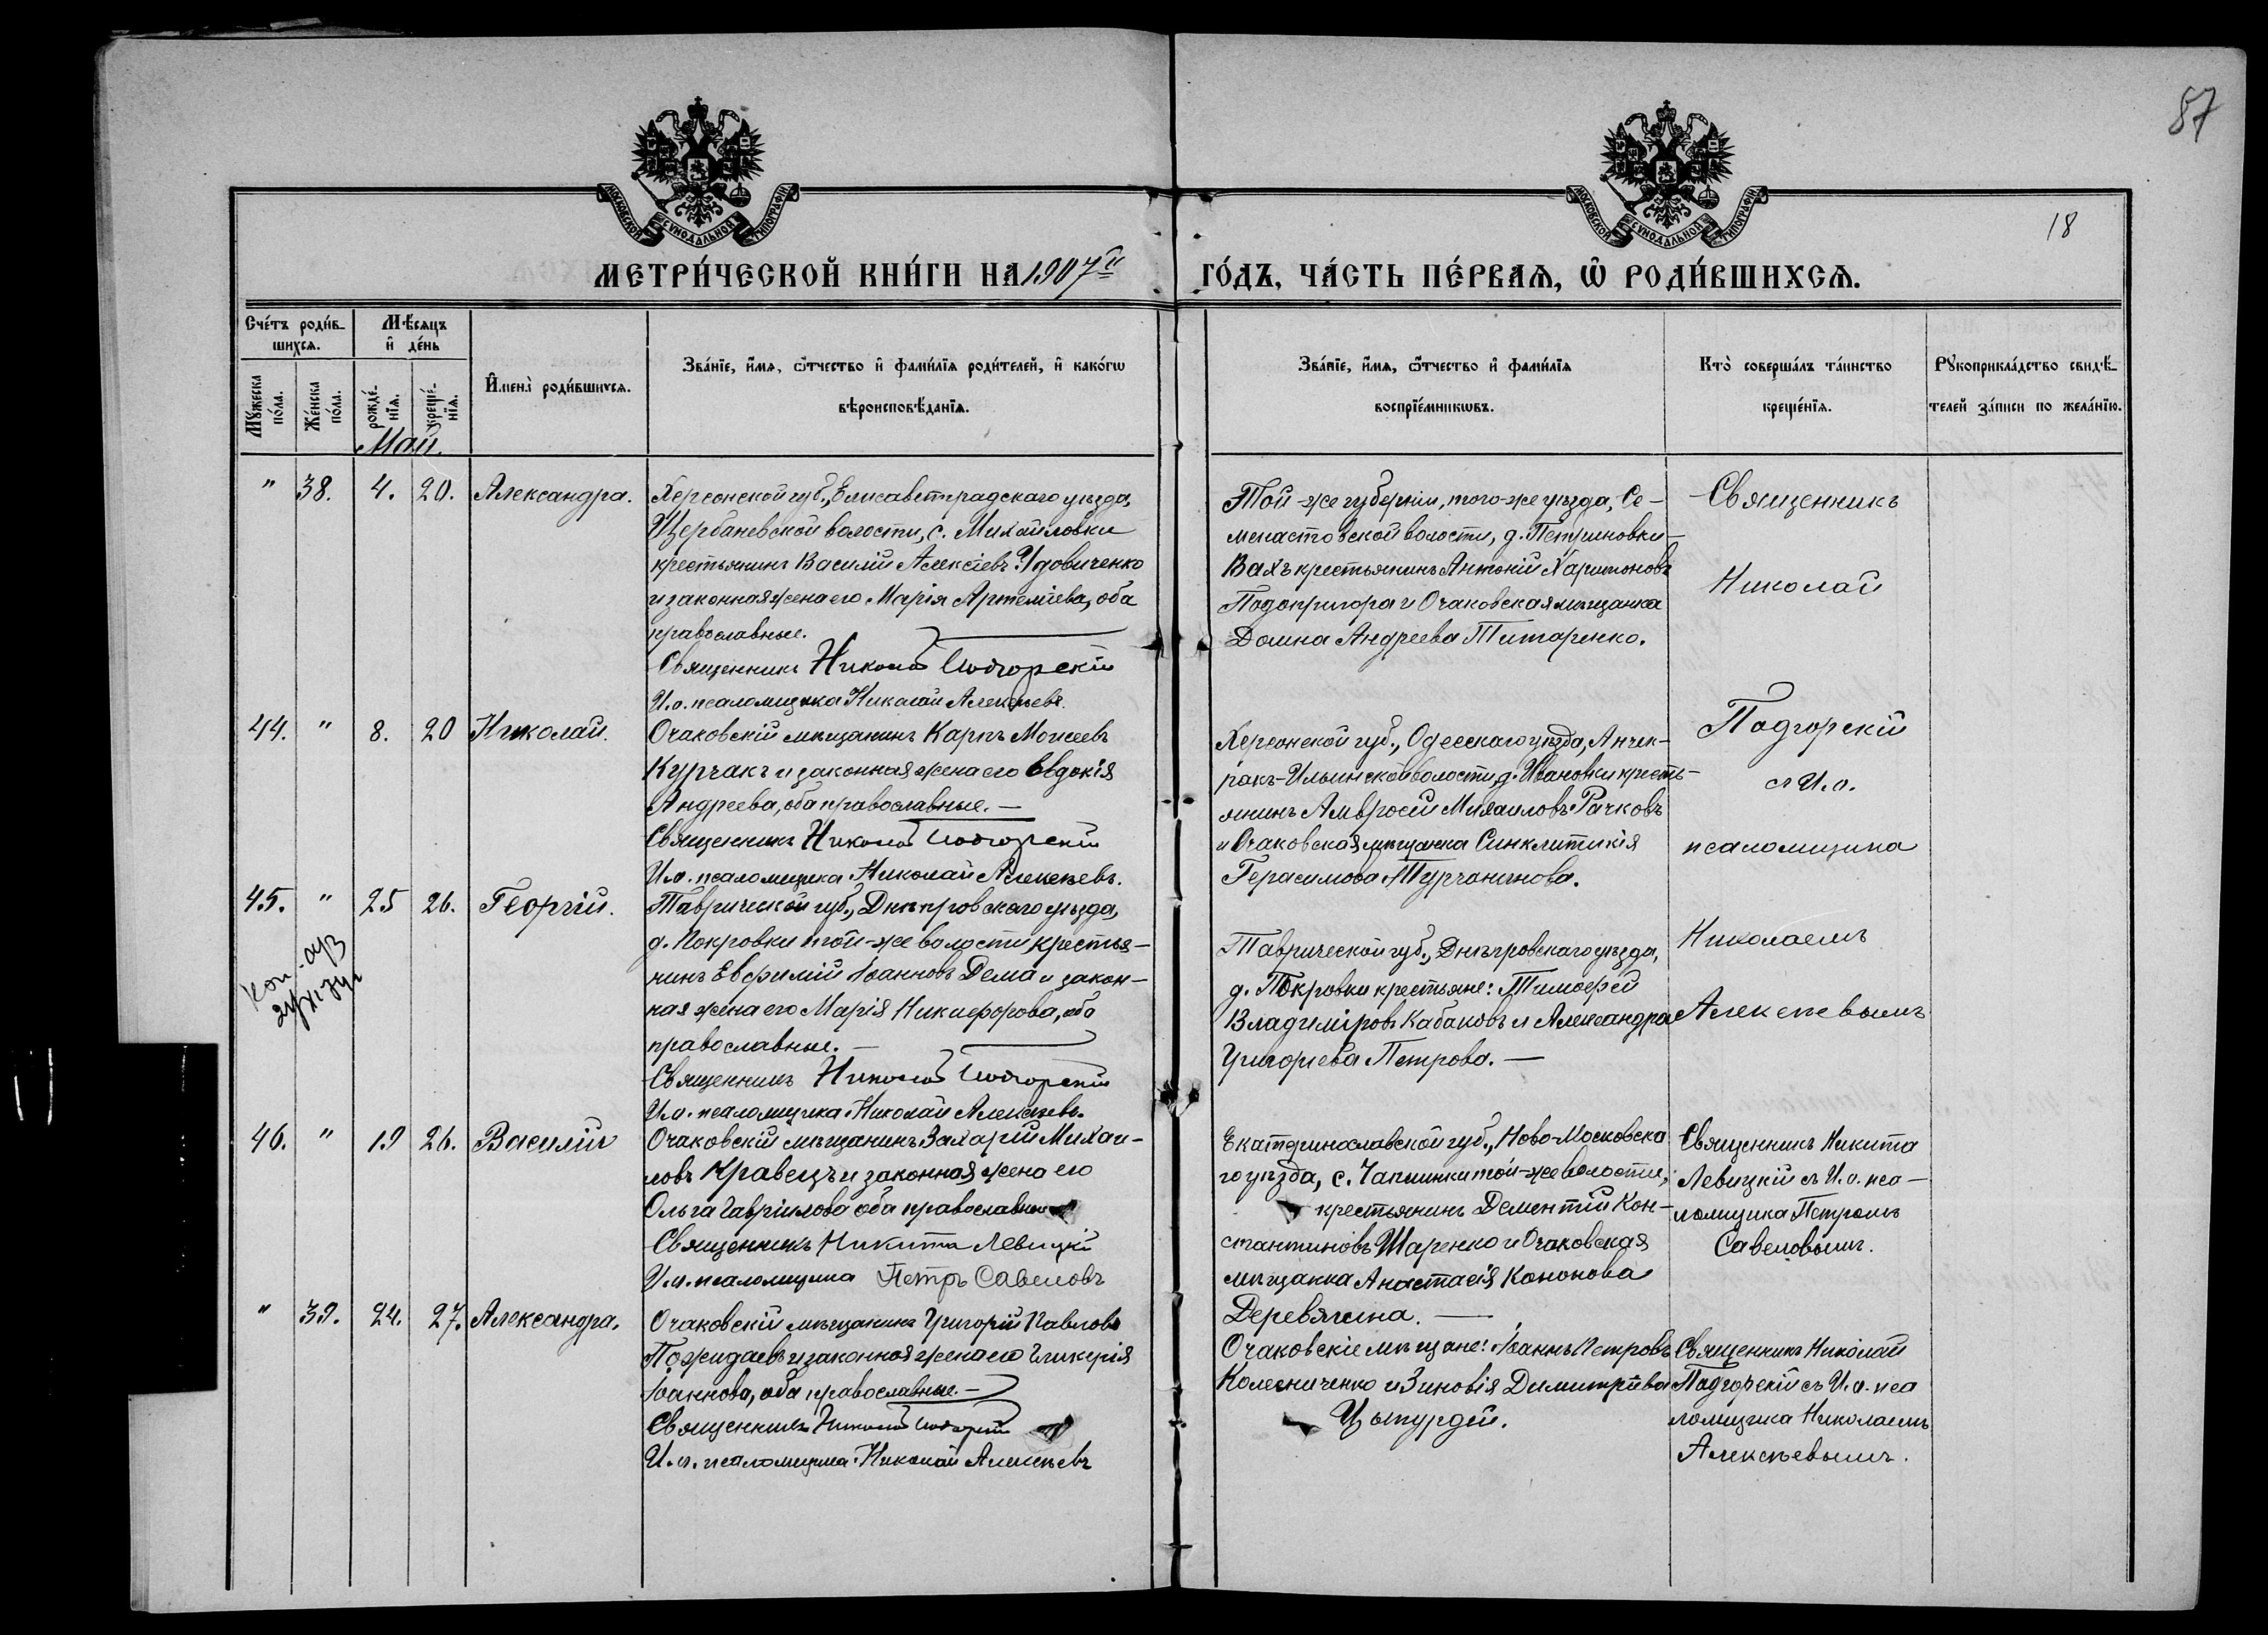 87
18
МОСКОВСКОЙ СѴНОДАЛЬНОЙ ТИПОГРАФІИ
МОСКОВСКОЙ СѴНОДАЛЬНОЙ ТИПОГРАФІИ
МЕТРИ́ЧЕСКОЙ КНИ́ГИ НА 1907й ГО́ДЪ, ЧА́СТЬ ПЕ́РВАѦ, Ѡ҆ РОДИ́ВШИХСѦ.
Сче́тъ роди́в-
шихсѧ.
Мꙋ́жеска
по́ла.
Же́нска
по́ла.
Мѣ́сѧцъ
и҆ де́нь
рожде́-
нїѧ.
креще́-
нїѧ.
И҆мена̀ роди́вшихсѧ.
Зва́нїе, и҆́мѧ, ѻ҆́тчество и҆ фами́лїѧ роди́телей, и҆ како́гѡ
вѣроисповѣ́данїѧ.
Зва́нїе, и҆́мѧ, ѻ҆́тчество и҆ фами́лїѧ
воспрїе́мникѡвъ.
Кто̀ соверша́лъ та́инство
креще́нїѧ.
Рꙋкоприкла́дство свидѣ́-
телей за́писи по жела́нїю.
Май.
" 38. 4. 20. Александра.
Херсонской губ., Елисаветградскаго уѣзда,
Щербаневской волости, с. Михайловки
крестьянинъ Василій Алексѣевъ Удовиченко
и законная жена его Марія Артеміева, оба
православные.
Священникъ Николай Подгорскій
И.о. псаломщика Николай Алексѣевъ.
Той-же губерніи, того-же уѣзда, Се-
менастовской волости, д. Петриновки-
Вахъ крестьянинъ Антоній Харитоновъ
Подопригора и Очаковская мѣщанка
Домна Андреева Титаренко.
Священникъ
Николай
Подгорскій
съ И.о.
псаломщика
Николаемъ
Алексѣевымъ
44. " 8. 20 Николай.
Очаковскій мѣщанинъ Карпъ Моисеевъ
Курчакъ и законная жена его Евдокія
Андреева, оба православные. —
Священникъ Николай Подгорскій
И.о. псаломщика Николай Алексѣевъ.
Херсонской губ., Одесскаго уѣзда, Анчек-
ракъ-Ильинской волости, д. Ивановки кресть-
янинъ Амвросій Михаиловъ Рачковъ
и Очаковская мѣщанка Синклитикія
Герасимова Турчанинова.
45. " 25 26. Георгій.
Таврической губ., Днѣпровскаго уѣзда,
д. Покровки той-же волости, крестья-
нинъ Евфимій Іоанновъ Дема и закон-
ная жена его Марія Никифорова, оба
православные. —
Священникъ Николай Подгорскій
И.о. псаломщика Николай Алексѣевъ.
Таврической губ., Днѣпровскаго уѣзда,
д. Покровки крестьяне: Тимофей
Владиміровъ Кабаковъ и Александра
Григорьева Петрова. —
46. " 19 26. Василій
Очаковскій мѣщанинъ Захарій Михаи-
ловъ Кравецъ и законная жена его
Ольга Гавріилова оба православные
Священникъ Никита Левицкій
И.о. псаломщика Петръ Савеловъ
Екатеринославской губ., Ново-Московска
го уѣзда, с. Чаплинки той-же волости,
крестьянинъ Дементій Кон-
стантиновъ Шаренко и Очаковская
мѣщанка Анастасія Кононова
Деревягина. —
Священникъ Никита
Левицкій съ И.о. пса-
ломщика Петромъ
Савеловымъ.
" 39. 24. 27. Александра.
Очаковскій мѣщанинъ Григорій Павловъ
Пожидаевъ и законная жена его Гликерія
Іоаннова, оба православные. —
Священникъ Николай Подгорскій
И.о. псаломщика Николай Алексѣевъ
Очаковскіе мѣщане: Іоаннъ Петровъ
Колесниченко и Зиновія Димитріева
Цыпурдей.
Священникъ Николай
Подгорскій съ И.о. пса
ломщика Николаемъ
Алексѣевымъ.